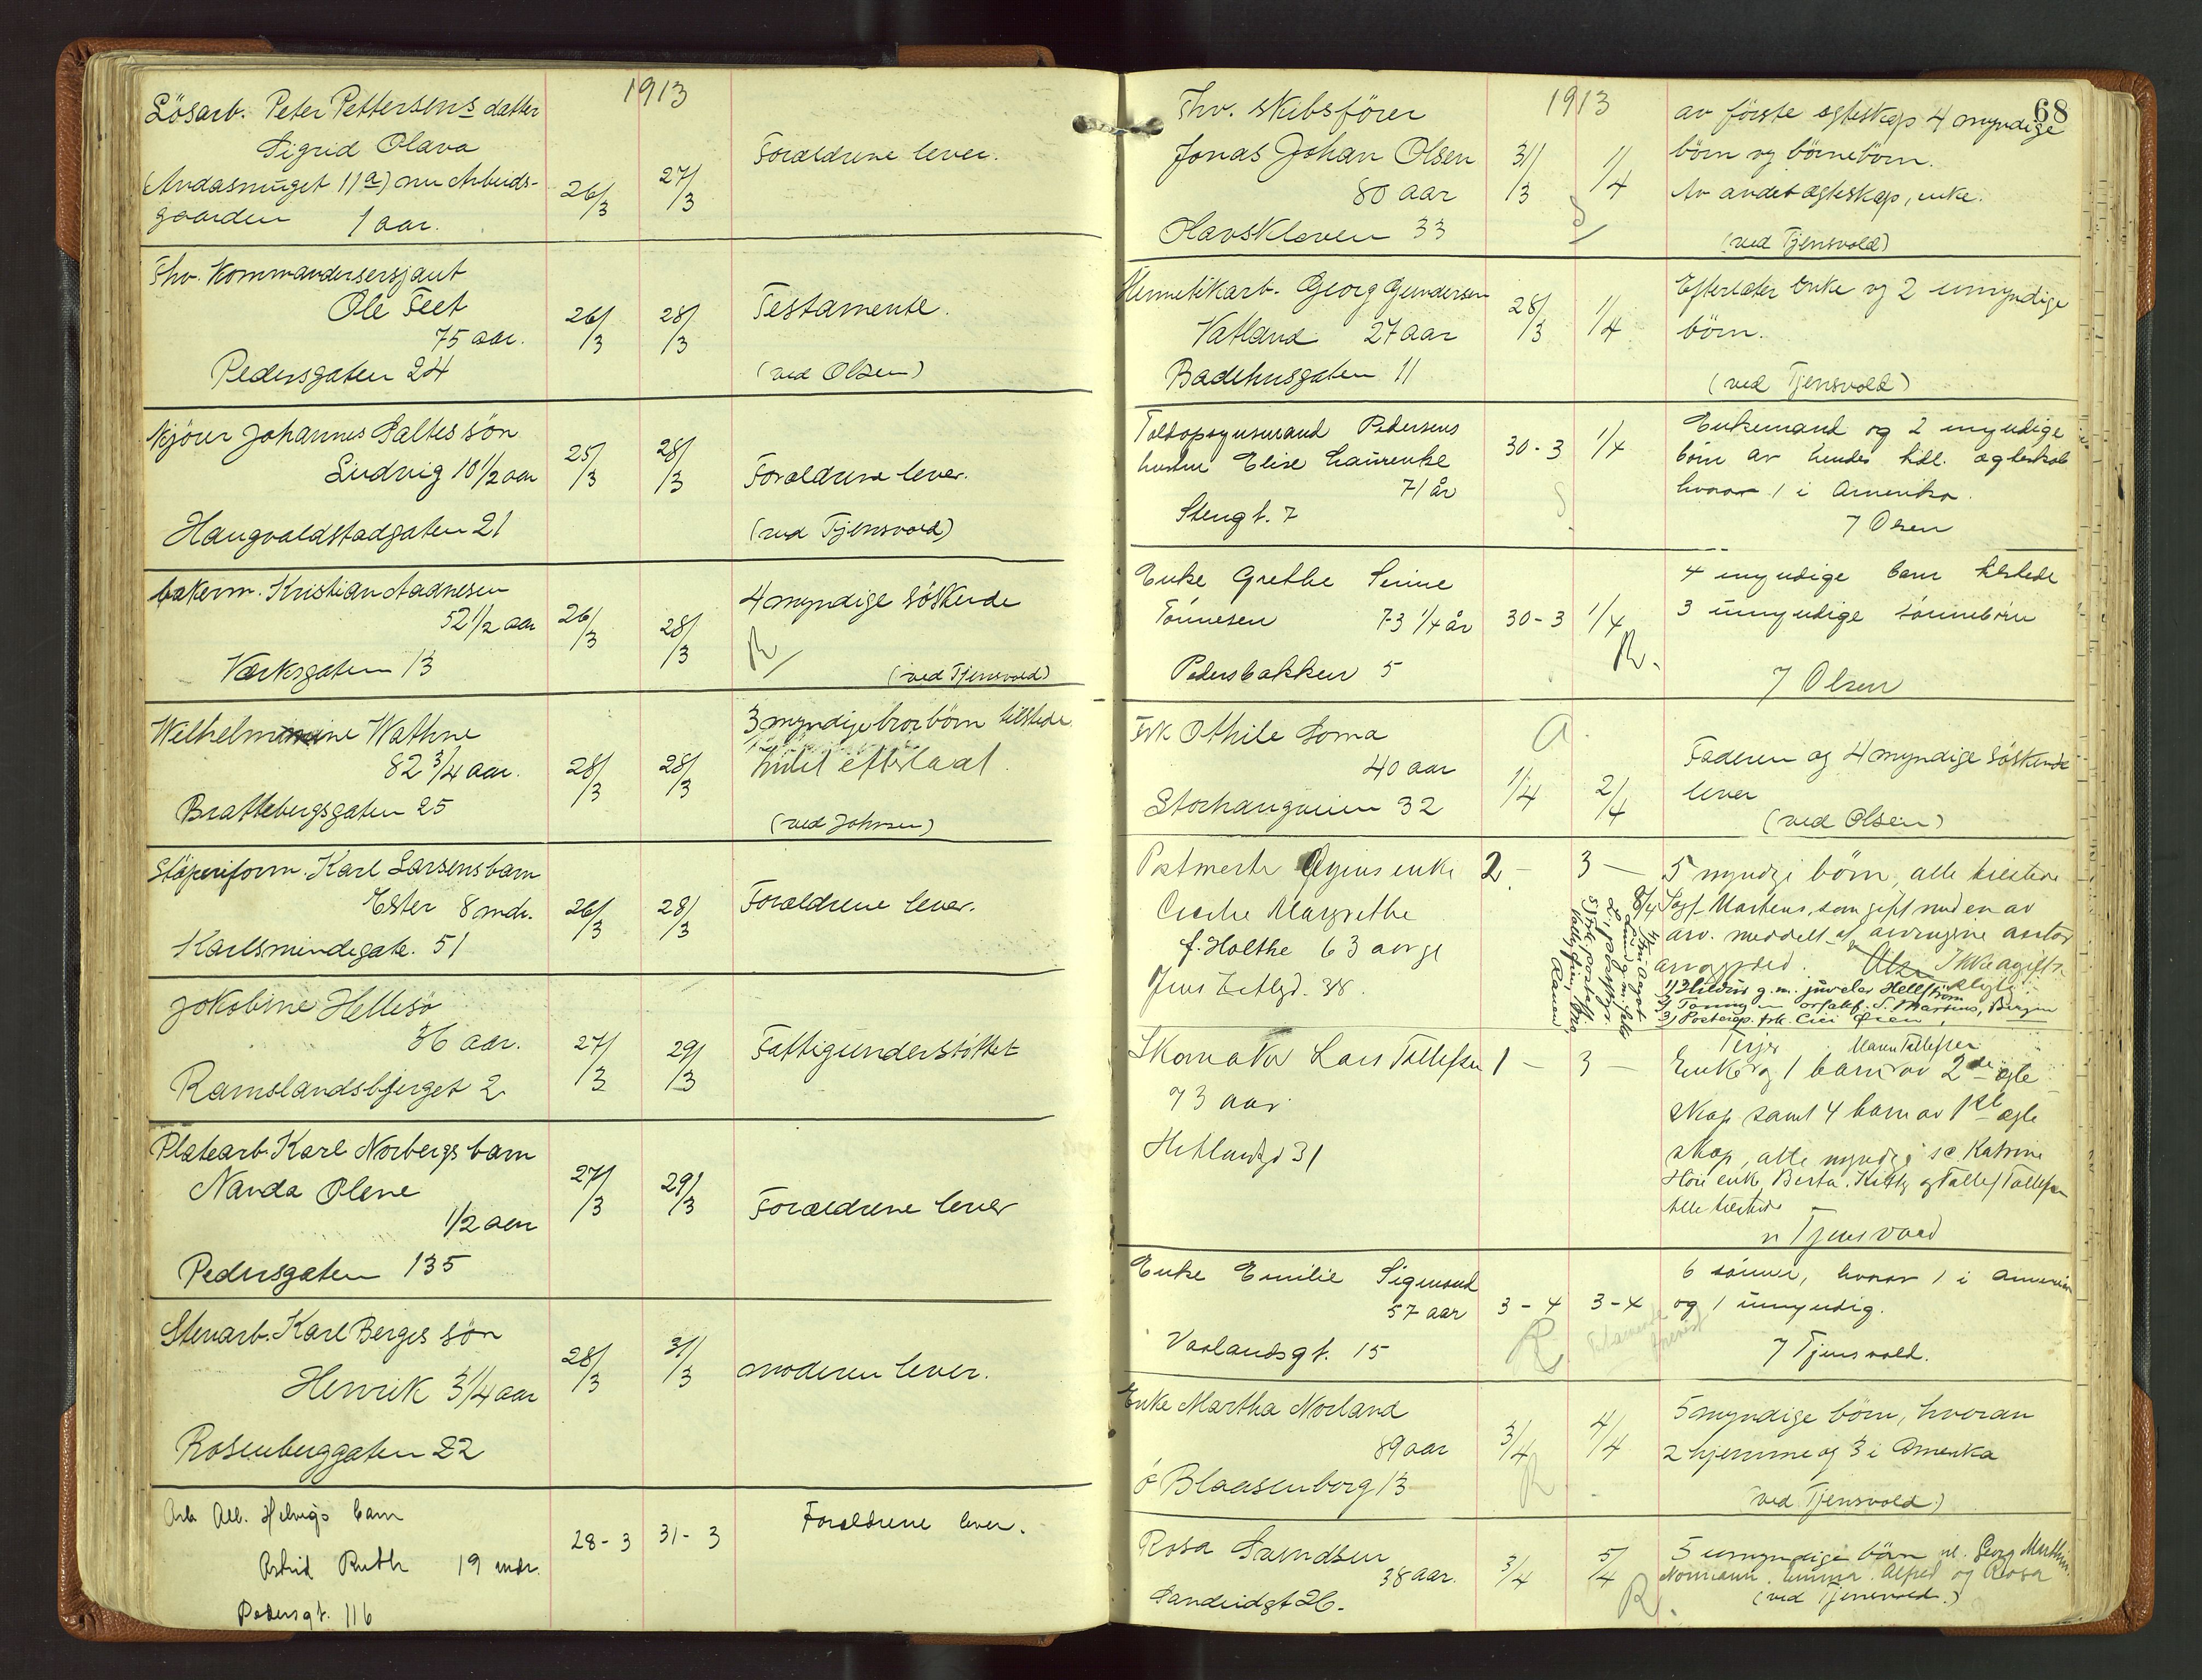 1913
Lösarb. Peter Pettersens datter
Sigrid Olava
(Andasmuget 11a) nu Arbeids-
gaarden 1 aar.
26/3 27/3
Forældrene lever.
Fhv. Kommandersersjant
Ole Feet
75 aar.
Pedersgaten 24
26/3 28/3
Testamente.
(ved Olsen)
Kjörer Johannes Saltes sön
Ludvig 10 1/2 aar
Haugvaldstadgaten 21
25/3 28/3
Forældrene lever.
(ved Tjensvold)
bakerm. Kristian Aadnesen
52 1/2 aar
Værksgaten 13
26/3 28/3
4 myndige söskende
R
(ved Tjensvold)
Wilhelmine Wathne
82 3/4 aar.
Brattebergsgaten 25
28/3 28/3
3 myndige brorbörn tilstede
intet efterladt.
(ved Johnsen)
Stöperiform. Karl Larsens barn
Ester 8 mdr.
Karlsmindegate. 51
26/3 28/3
Forældrene lever.
Jokobine Hellesö
36 aar.
Ramslandsbjerget 2
27/3 29/3
Fattigunderstöttet
Platearb. Karl Norbergs barn
Nanda Olene
1/2 aar
Pedersgaten 135
27/3 29/3
Forældrene lever
Stenarb. Karl Berges sön
Henrik 3 1/4 aar
Rosenberggaten 22
28/3 31/3
moderen lever.
Arb. Alb. Helvigs barn
Astrid Ruth 19 mdr.
Pedersgt. 116
28-3 31-3
Forældrene lever.
68
1913
Fhv. skibsförer
Jonas Johan Olsen
80 aar
Olavskleven 33
31/3 1/4
av förste egteskap 4 myndige
börn og börnebörn.
Av andet ægteskap, enke.
(ved Tjensvold)
Hermetikarb. Georg Gundersen
Vatland 27 aar
Badehusgaten 11
28/3 1/4
Efterlater enke og 2 umyndige
börn.
(ved Tjensvold)
Toldopsynsmand Pedersens
hustru Elise Laurenke
71 år
Stengt. 7
30-3 1/4
Enkemand og 2 myndige
börn av hendes tidl. ægteskab
hvorav 1 i Amerika.
7 Olsen
Enke Grethe Serine
Tönnesen 73 1/4 år
Pedersbakken 5
30-3 1/4
R.
4 myndige barn tilstede
3 umyndige sönnebörn
7 Olsen
Frk Othile Soma
40 aar
Storhaugveien 32
1/4 2/4
Faderen og 4 myndige söskende
lever
(ved Olsen)
Postmester Øyens enke
Cecilie Margrethe
f. Holthe 63 aar gl
Jens Zetlgd. 38
2 - 3 -
5 myndige börn, alle tilstede
8/4 Sagf. Martens, som gift med en av
arv. meddelt at arvingene antar
1) Hildur g.m. juveler Hellström
2) g.m. orsakf. S. Martens, Bergen
3) Postexp. frk. Cici Øien
Skomaker Lars Tollefsen
73 aar
Hetlandgd 31
1 - 3 -
Terjer Maren Tollefsen
Enke og 1 barn av 2de ægte
skap samt 4 barn av 1ste ægte
skap, alle myndig sc. Katrine
Höie enke, Berta, Kitty og Tollef Tollefsen
alle tilstede
n Tjensvold
Enke Emilie Sigmund
57 aar
Vaalandsgt. 15
3-4 3-4
R
6 sönner, hvorav 1 i Amerika
og 1 umyndig.
7 Tjensvold.
Enke Martha Norland
89 aar
ö Blaasenborg 13
3/4 4/4
R
5 myndige börn, hvorav
2 hjemme og 3 i Amerika
(ved Tjensvold)
Rosa Svendsen
38 aar.
Sandeidgt 26.
3/4 5/4
R.
5 umyndige börn nl. Georg Marthin
Normann, Emma, Alfred og Rosa
(ved Tjensvold.)